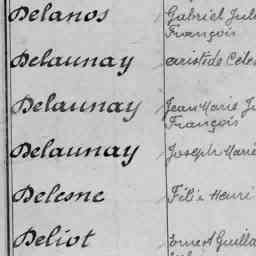 Delanos Gabriel Jule
François
Delaunay aristide Céles
Delaunay Jean Marie Ju
François
Delaunay Joseph Marie
Delesne Félix Henri
Deliot Ernest Guilla